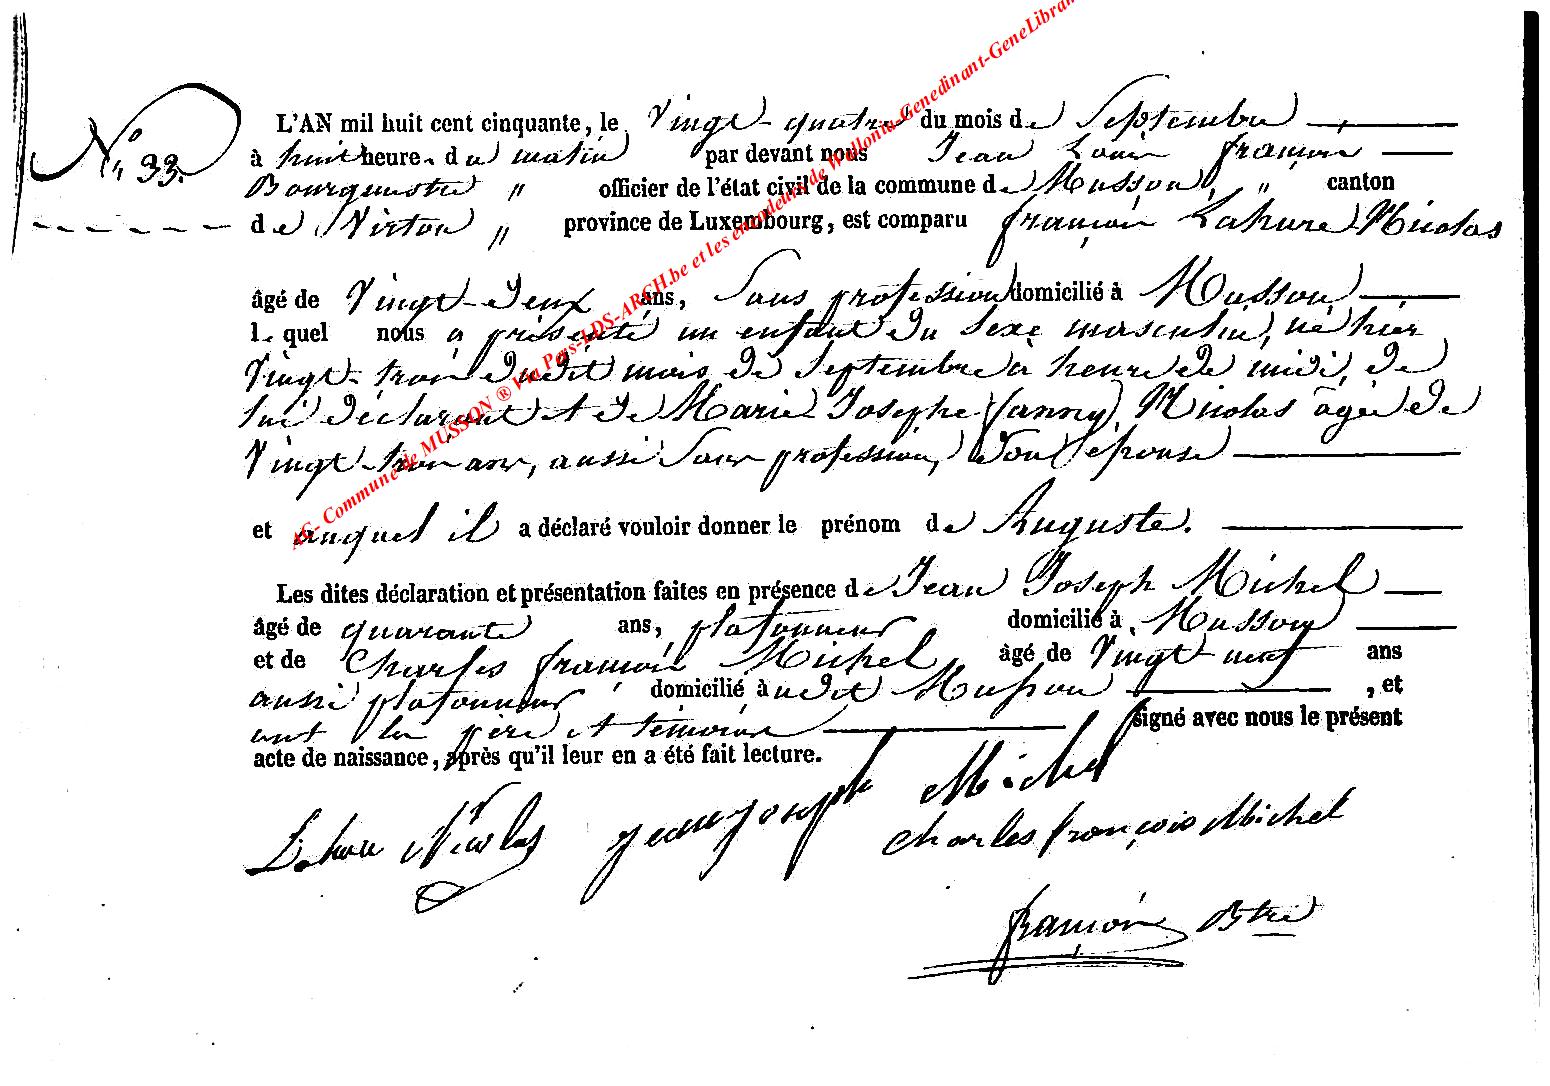 N° 33.
L'AN mil huit cent cinquante, le Vingt-quatre du mois de Septembre
à huit heures du matin par devant nous Jean Louis françois
Bourgmestre " officier de l'état civil de la commune de Musson, " canton
de Virton " province de Luxembourg, est comparu françois Lahure Nicolas
âgé de Vingt-deux ans, Sans profession domicilié à Musson
lequel nous a présenté un enfant du Sexe masculin, né hier
Vingt-trois dudit mois de Septembre à heure de midi, de
lui déclarant et de Marie Josephe (anny) Nicolas âgée de
Vingt-trois ans, aussi Sans profession, Son épouse
et auquel il a déclaré vouloir donner le prénom de Auguste.
Les dites déclaration et présentation faites en présence de Jean Joseph Michel
âgé de quarante ans, plafonneur domicilié à Musson
et de Charles françois Michel âgé de Vingt neuf ans
aussi plafonneur domicilié audit Musson , et
ont les père et témoins signé avec nous le présent
acte de naissance, après qu'il leur en a été fait lecture.
Lahure Nicolas jean joseph Michel
Charles françois Michel
françois Btre
AG- Commune de MUSSON ® Via Pers-LDS-ARCH.be et les encodeurs de Wallonia-Genedinant-GeneLibran